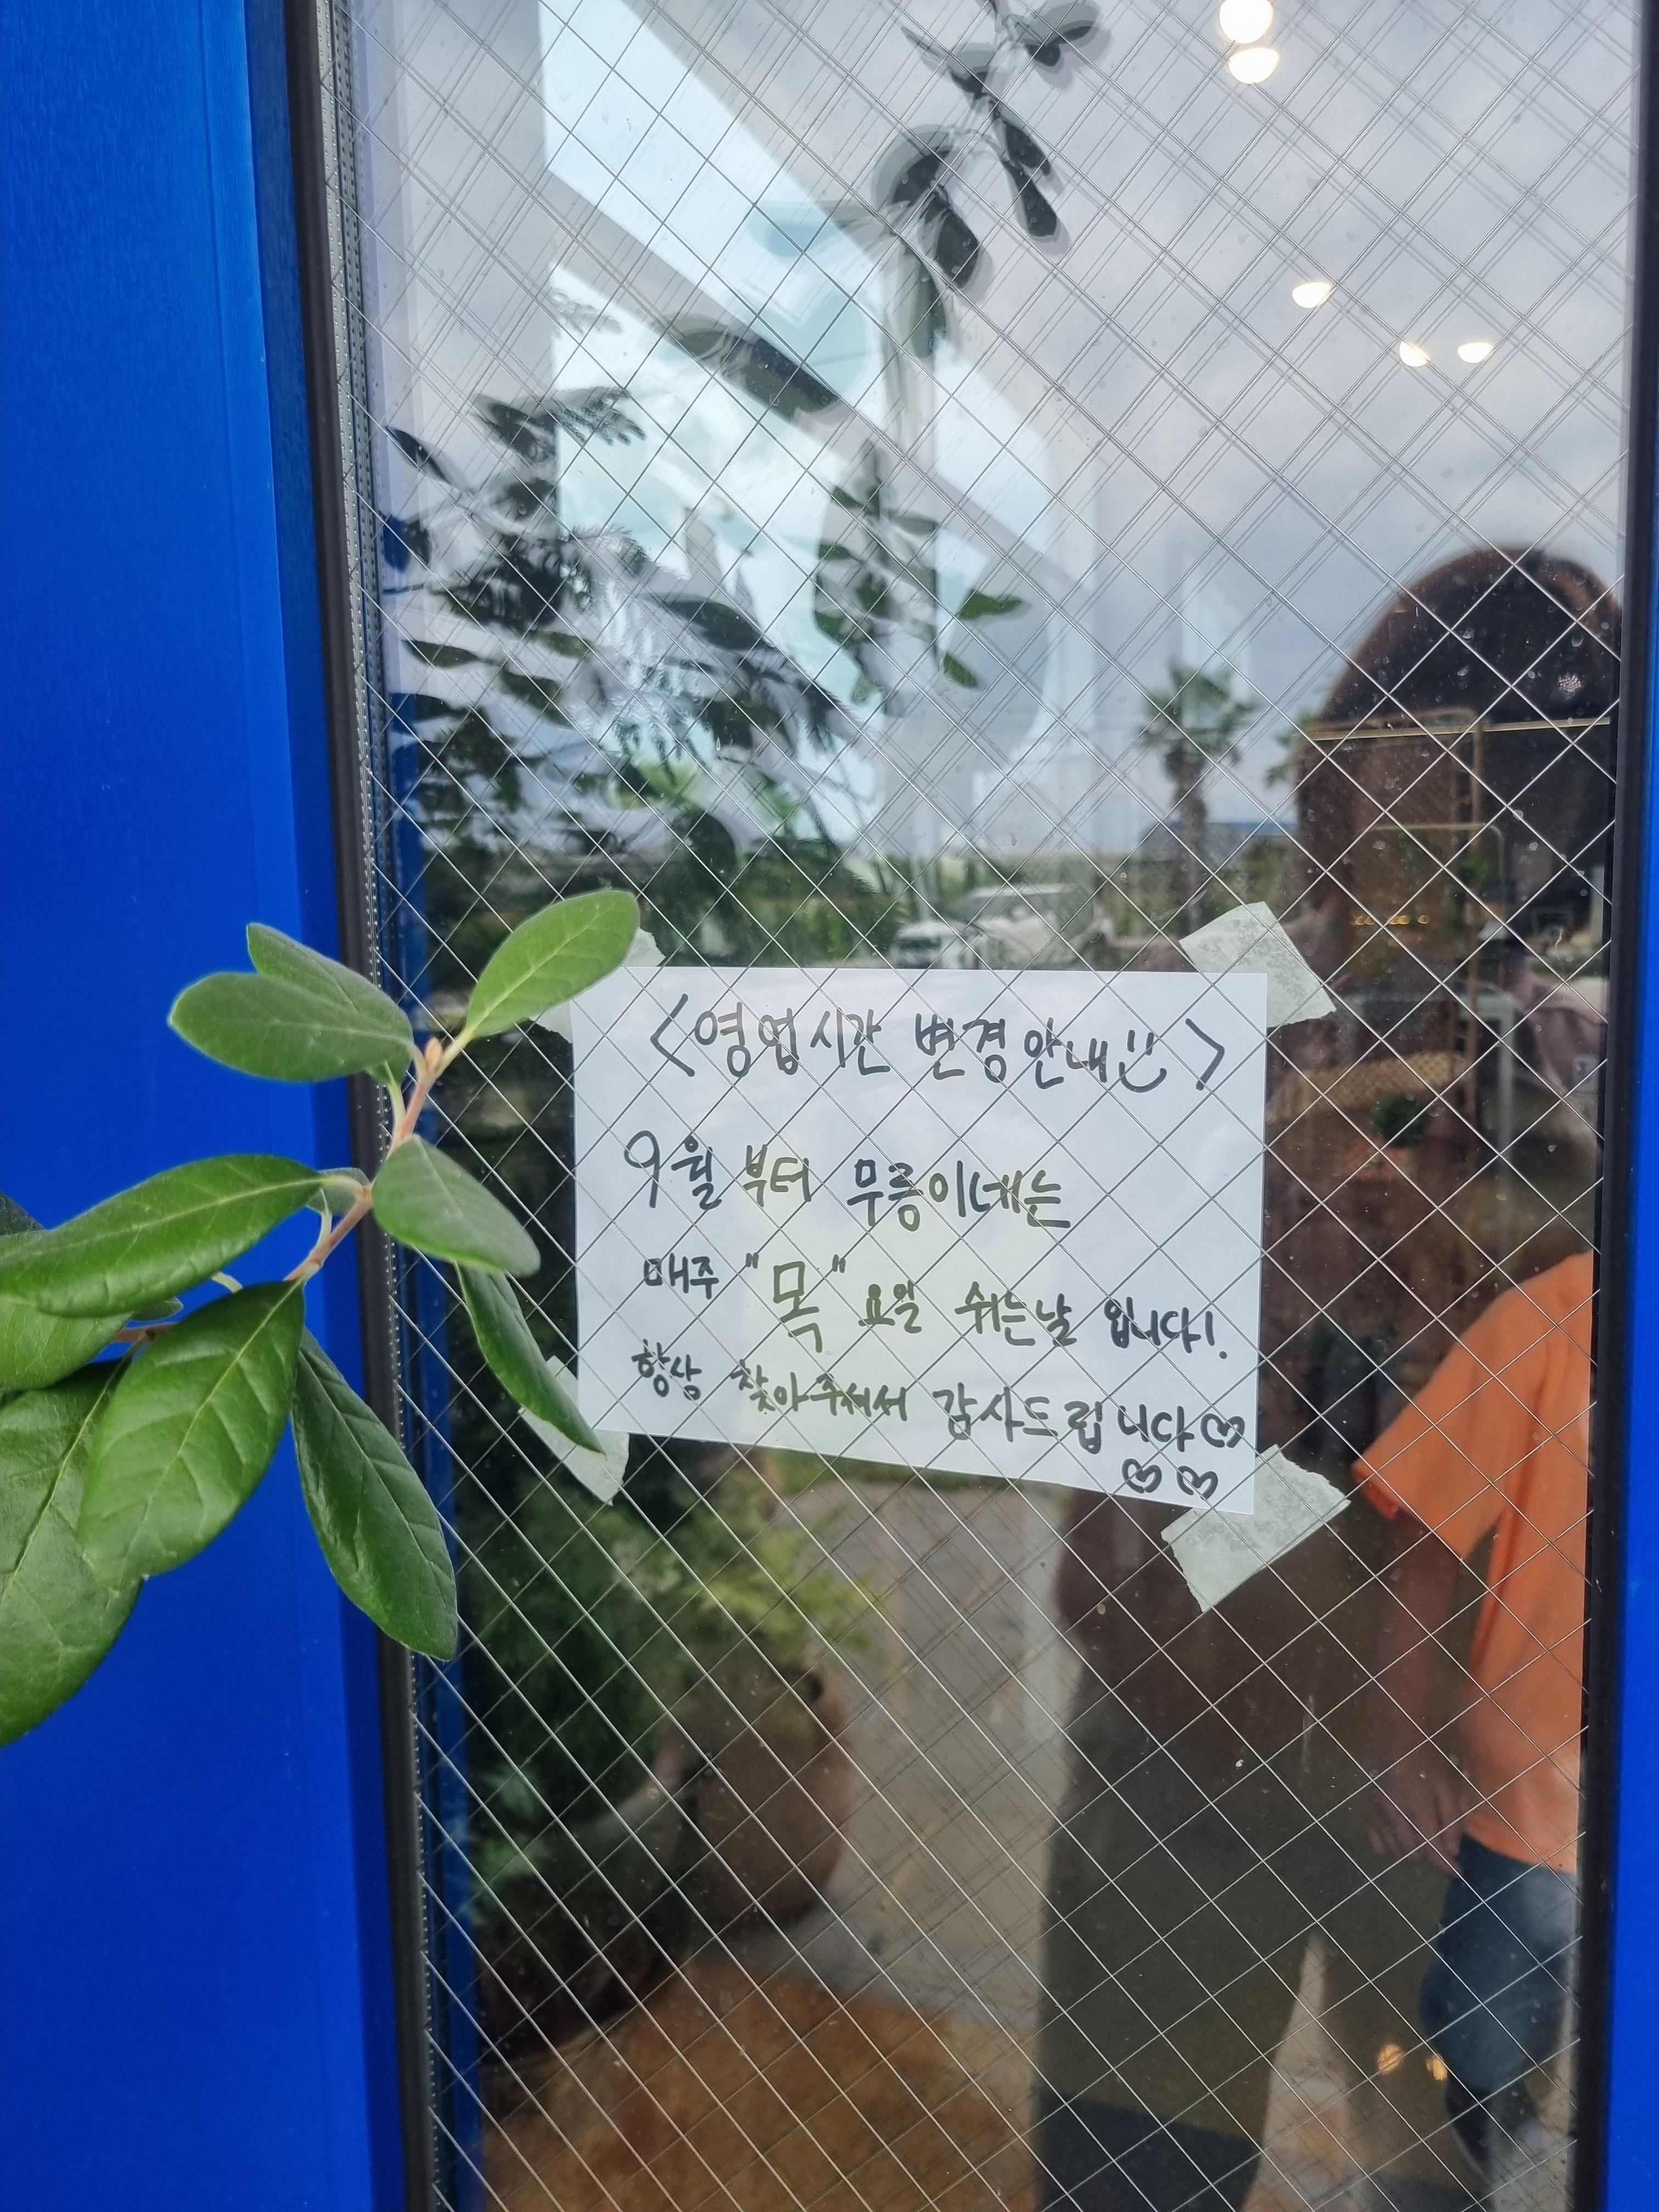 <영업시간 변경안내!!>
9월부터 무릉이네는
매주 "목"요일 쉬는날 입니다!
항상 찾아주셔서 감사드립니다♡
♡♡